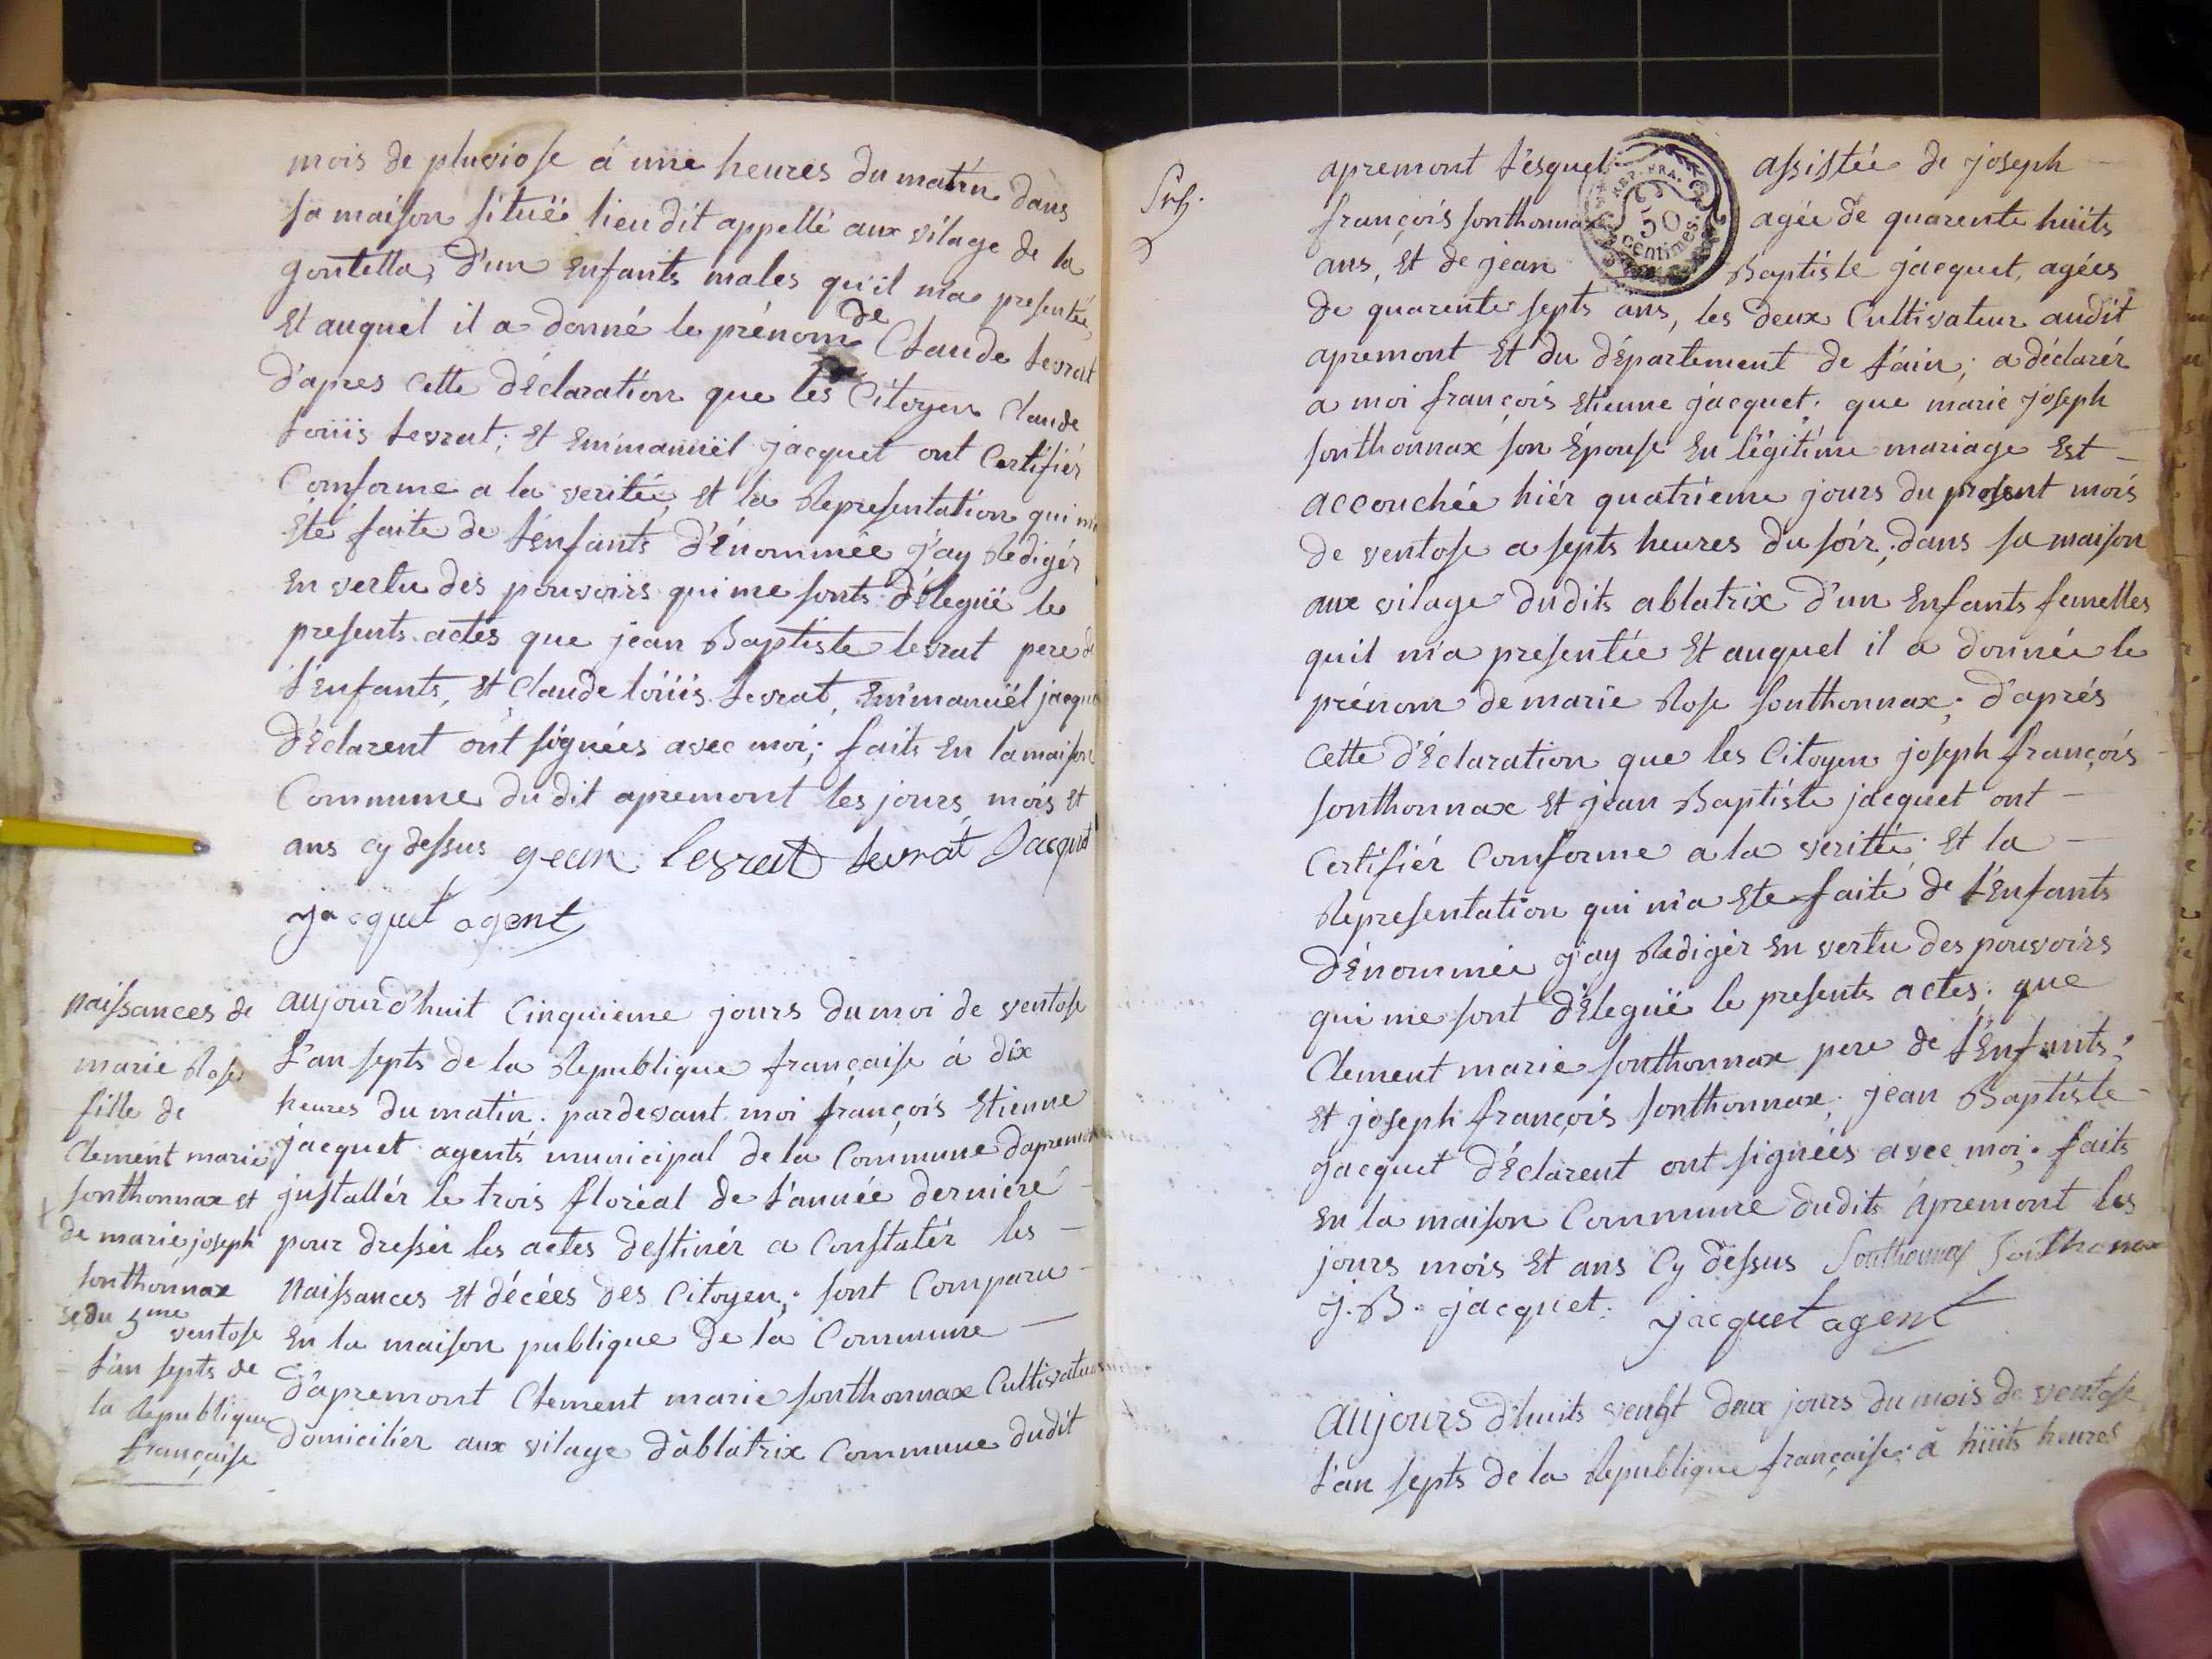 mois de pluviose à une heures du matin dans
sa maison situë lieu dit appellé aux vilage de la
goutetta, d'un Enfants males qu'il ma presentée,
Et auquel il a donné le prénom de Claude Levrat
d'apres cette déclaration que les Citoyen Claude
Louis Levrat; Et Emmanuël jacquet ont Certifiér
Comforme a la veritée, Et la Representation qui m'a
Eté faite de L'enfants dénommée j'ay Redigér
En vertu des pouvoirs qui me sonts déleguë le
presents actes que jean Baptiste levrat pere de
L'Enfants, Et Claude loüis Levrat, Emmanuël jacquet
déclarent ont signées avec moi; faits En la maison
Commune du dit apremont les jours, mois et
ans cy dessus gean levrat Levrat Jacquet
jacquet agent
Naissances de
marie Rose
fille de
Clement marie
sonthonnax et
de marie joseph
sonthonnax
se du 5me
ventose
L'an septs de
la Republique
française
aujourd'huit Cinquieme jours du moi de ventose
L'an septs de la Republique française à dix
heures du matin. pardevant moi françois Etienne
jacquet agents municipal de la Commune dapremont
justallér le trois floréal de L'année derniere
pour dressér les actes destinér a Constatér les
Naissances Et décées des Citoyen; sont Comparu
En la maison publique de la Commune
d'apremont Clement marie sonthonnax Cultivateur
domiciliér aux vilage d'ablatrix Commune dudit
apremont Lesquel assistée de joseph
REP. FRA.
50
centimes.
françois sonthonnax agée de quarente huits
ans, Et de jean Baptiste jacquet, agées
de quarente septs ans, les deux Cultivateur audit
apremont Et du département de L'ain; a déclarér
a moi françois Etienne jacquet; que marie joseph
sonthonnax son Épouse En légitime mariage Est
accouchée hiér quatrieme jours du present mois
de ventose a septs heures du soir; dans sa maison
aux vilage dudits ablatrix d'un Enfants femelles
quil m'a presentée Et auquel il a donnée le
prénom de marie Rose sonthonnax; d'aprés
cette déclaration que les Citoyen joseph françois
sonthonnax Et jean Baptiste jacquet ont
Certifiér Comforme a la veritée Et la
Representation qui m'a Ete faite de L'Enfants
dénommée j'ay Redigér En vertu des pouvoirs
qui me sont déleguë le presents actes; que
Clement marie sonthonnax pere de L'Enfants;
Et joseph françois sonthonnax; jean Baptiste
jacquet déclarent ont signées avec moi; faits
En la maison Commune dudits apremont les
jours mois Et ans Cy dessus Sonthonnax Sonthonax
J. B. jacquet. jacquet agent
aujours d'huits vengt deux jours du mois de ventose
L'an septs de la Republique française; à huits heures